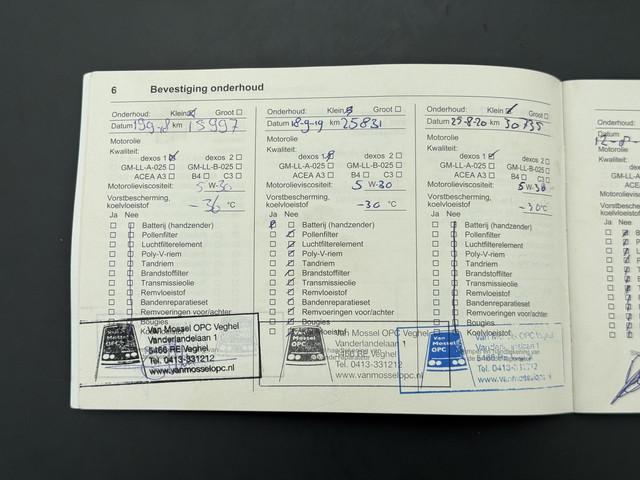 6 Bevestiging onderhoud
Onderhoud: Klein Groot
Datum 19-9-18 km 15997
Motorolie
Kwaliteit:
dexos 1 dexos 2
GM-LL-A-025 GM-LL-B-025
ACEA A3 B4 C3
Motorolieviscositeit: 5 W-30
Vorstbescherming,
koelvloeistof -36 °C
Ja Nee
Batterij (handzender)
Pollenfilter
Luchtfilterelement
Poly-V-riem
Tandriem
Brandstoffilter
Transmissieolie
Remvloeistof
Bandenreparatieset
Remvoeringen voor/achter
Bougies
Van Mossel OPC Veghel
Vanderlandelaan 1
5466 RE Veghel
Tel. 0413-331212
www.vanmosselopc.nl
Onderhoud: Klein Groot
Datum 18-9-19 km 25831
Motorolie
Kwaliteit:
dexos 1 dexos 2
GM-LL-A-025 GM-LL-B-025
ACEA A3 B4 C3
Motorolieviscositeit: 5 W-30
Vorstbescherming,
koelvloeistof -30 °C
Ja Nee
Batterij (handzender)
Pollenfilter
Luchtfilterelement
Poly-V-riem
Tandriem
Brandstoffilter
Transmissieolie
Remvloeistof
Bandenreparatieset
Remvoeringen voor/achter
Bougies
Koelvloeistof
Van Mossel OPC Veghel
1
5466 RE Veghel
Tel. 0413-331212
www.vanmosselopc.nl
Onderhoud: Klein Groot
Datum 25-8-20 km 30735
Motorolie
Kwaliteit:
dexos 1 dexos 2
GM-LL-A-025 GM-LL-B-025
ACEA A3 B4 C3
Motorolieviscositeit: 5 W-30
Vorstbescherming,
koelvloeistof -30°C
Ja Nee
Batterij (handzender)
Pollenfilter
Luchtfilterelement
Poly-V-riem
Tandriem
Brandstoffilter
Transmissieolie
Remvloeistof
Bandenreparatieset
Remvoeringen voor/achter
Bougies
Koelvloeistof
Van
Mossel
OPC
Tel. 0413-331212
Onderhoud
Datum
12-8-
Motorolie
Kwaliteit:
GM-LL-A
ACEA
Motorolie
Vorstbe
koelvloe
Ja Nee